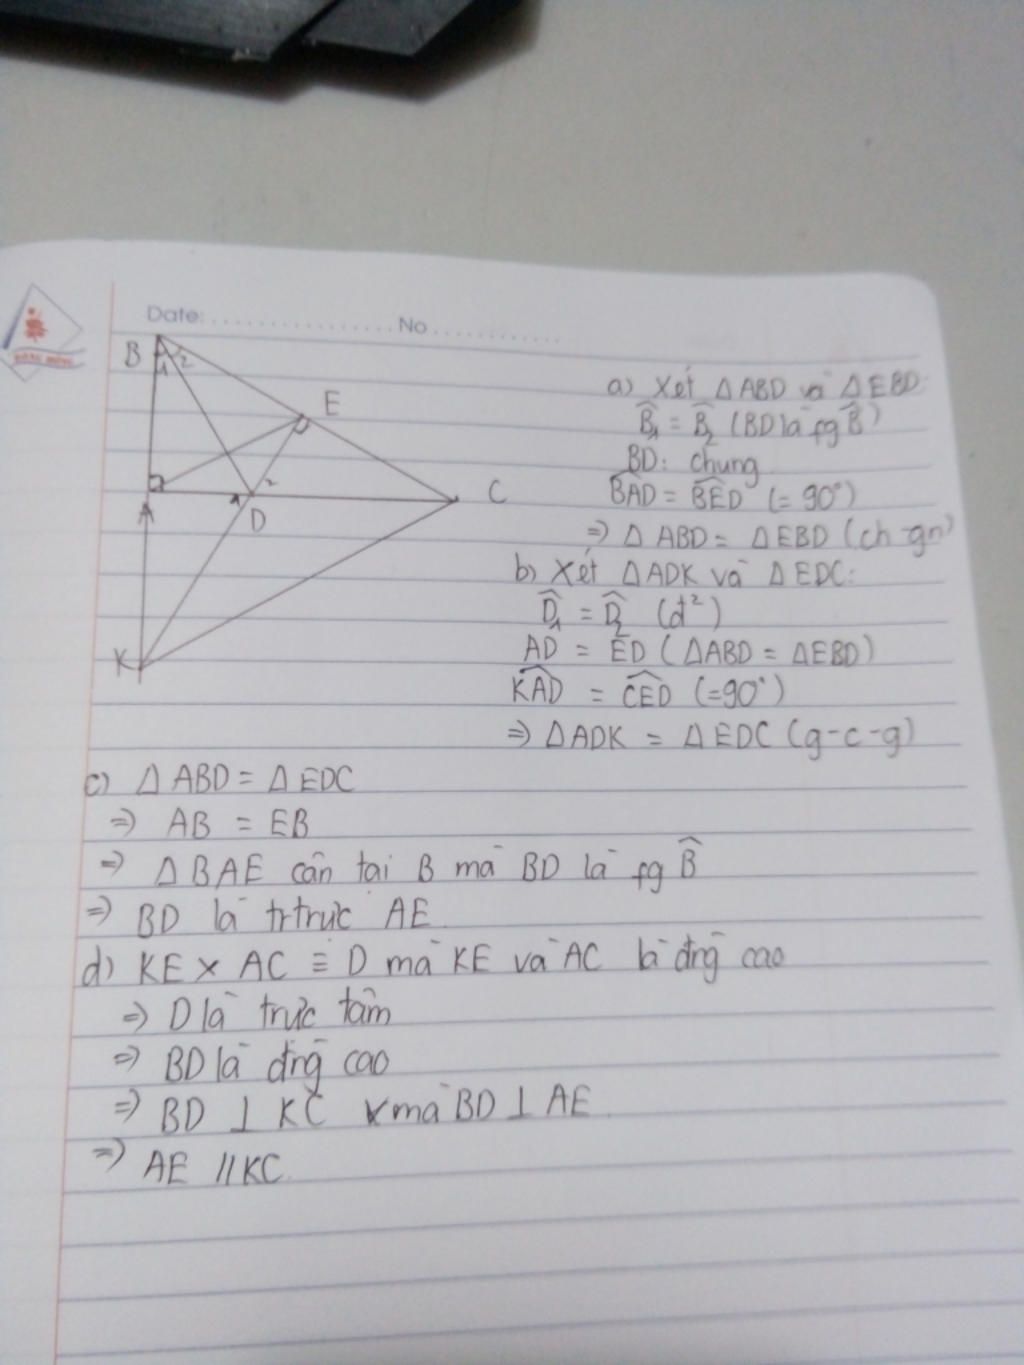 Date: No
B
1 2
E
C
1 2
D
K
a) Xét ΔABD và ΔEBD:
B̂₁ = B̂₂ (BD là fg B̂)
BD: chung
BAD̂ = BED̂ (= 90°)
⇒ Δ ABD = Δ EBD (ch-gn)
b) Xét ΔADK và ΔEDC:
D̂₁ = D̂₂ (đ²)
AD = ED (ΔABD = ΔEBD)
KAD̂ = CED̂ (=90°)
⇒ ΔADK = ΔEDC (g-c-g)
c) Δ ABD = Δ EDC
⇒ AB = EB
⇒ ΔBAE cân tại B mà BD là fg B̂
⇒ BD là trtrực AE
d) KE x AC ≡ D mà KE và AC là đng̃ cao
⇒ D là trực tâm
⇒ BD là đng̃ cao
⇒ BD ⊥ KC mà BD ⊥ AE
⇒ AE // KC.